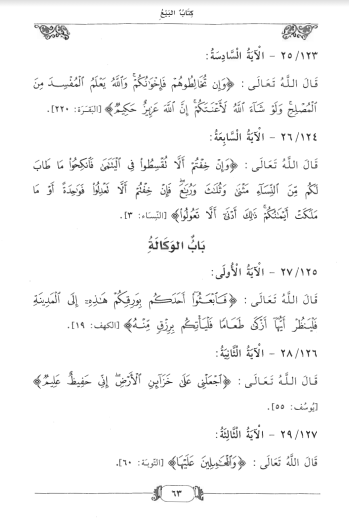 كِتَابُ البَيْعِ
٢٥/١٢٣ - الْآيَةُ السَّادِسَةُ:
قَالَ اللَّهُ تَعَالَى: ﴿وَإِن تُخَالِطُوهُمْ فَإِخْوَانُكُمْ وَاللَّهُ يَعْلَمُ الْمُفْسِدَ مِنَ
الْمُصْلِحِ وَلَوْ شَاءَ اللَّهُ لَأَعْنَتَكُمْ إِنَّ اللَّهَ عَزِيزٌ حَكِيمٌ﴾ [البَقَرَة: ٢٢٠].
٢٦/١٢٤ - الْآيَةُ السَّابِعَةُ:
قَالَ اللَّهُ تَعَالَى: ﴿وَإِنْ خِفْتُمْ أَلَّا تُقْسِطُوا فِي الْيَتَامَىٰ فَانكِحُوا مَا طَابَ
لَكُم مِّنَ النِّسَاءِ مَثْنَىٰ وَثُلَاثَ وَرُبَاعَ فَإِنْ خِفْتُمْ أَلَّا تَعْدِلُوا فَوَاحِدَةً أَوْ مَا
مَلَكَتْ أَيْمَانُكُمْ ذَٰلِكَ أَدْنَىٰ أَلَّا تَعُولُوا﴾ [النِّسَاء: ٣].
بَابُ الوَكَالَةُ
٢٧/١٢٥ - الْآيَةُ الْأُولَى:
قَالَ اللَّهُ تَعَالَى: ﴿فَابْعَثُوا أَحَدَكُم بِوَرِقِكُمْ هَٰذِهِ إِلَى الْمَدِينَةِ
فَلْيَنظُرْ أَيُّهَا أَزْكَىٰ طَعَامًا فَلْيَأْتِكُم بِرِزْقٍ مِّنْهُ﴾ [الكهف: ١٩].
٢٨/١٢٦ - الْآيَةُ الثَّانِيَةُ:
قَالَ اللَّهُ تَعَالَى: ﴿اجْعَلْنِي عَلَىٰ خَزَائِنِ الْأَرْضِ إِنِّي حَفِيظٌ عَلِيمٌ﴾
[يُوسُف: ٥٥].
٢٩/١٢٧ - الْآيَةُ الثَّالِثَةُ:
قَالَ اللَّهُ تَعَالَى: ﴿وَالْعَامِلِينَ عَلَيْهَا﴾ [التَّوبَة: ٦٠].
٦٣